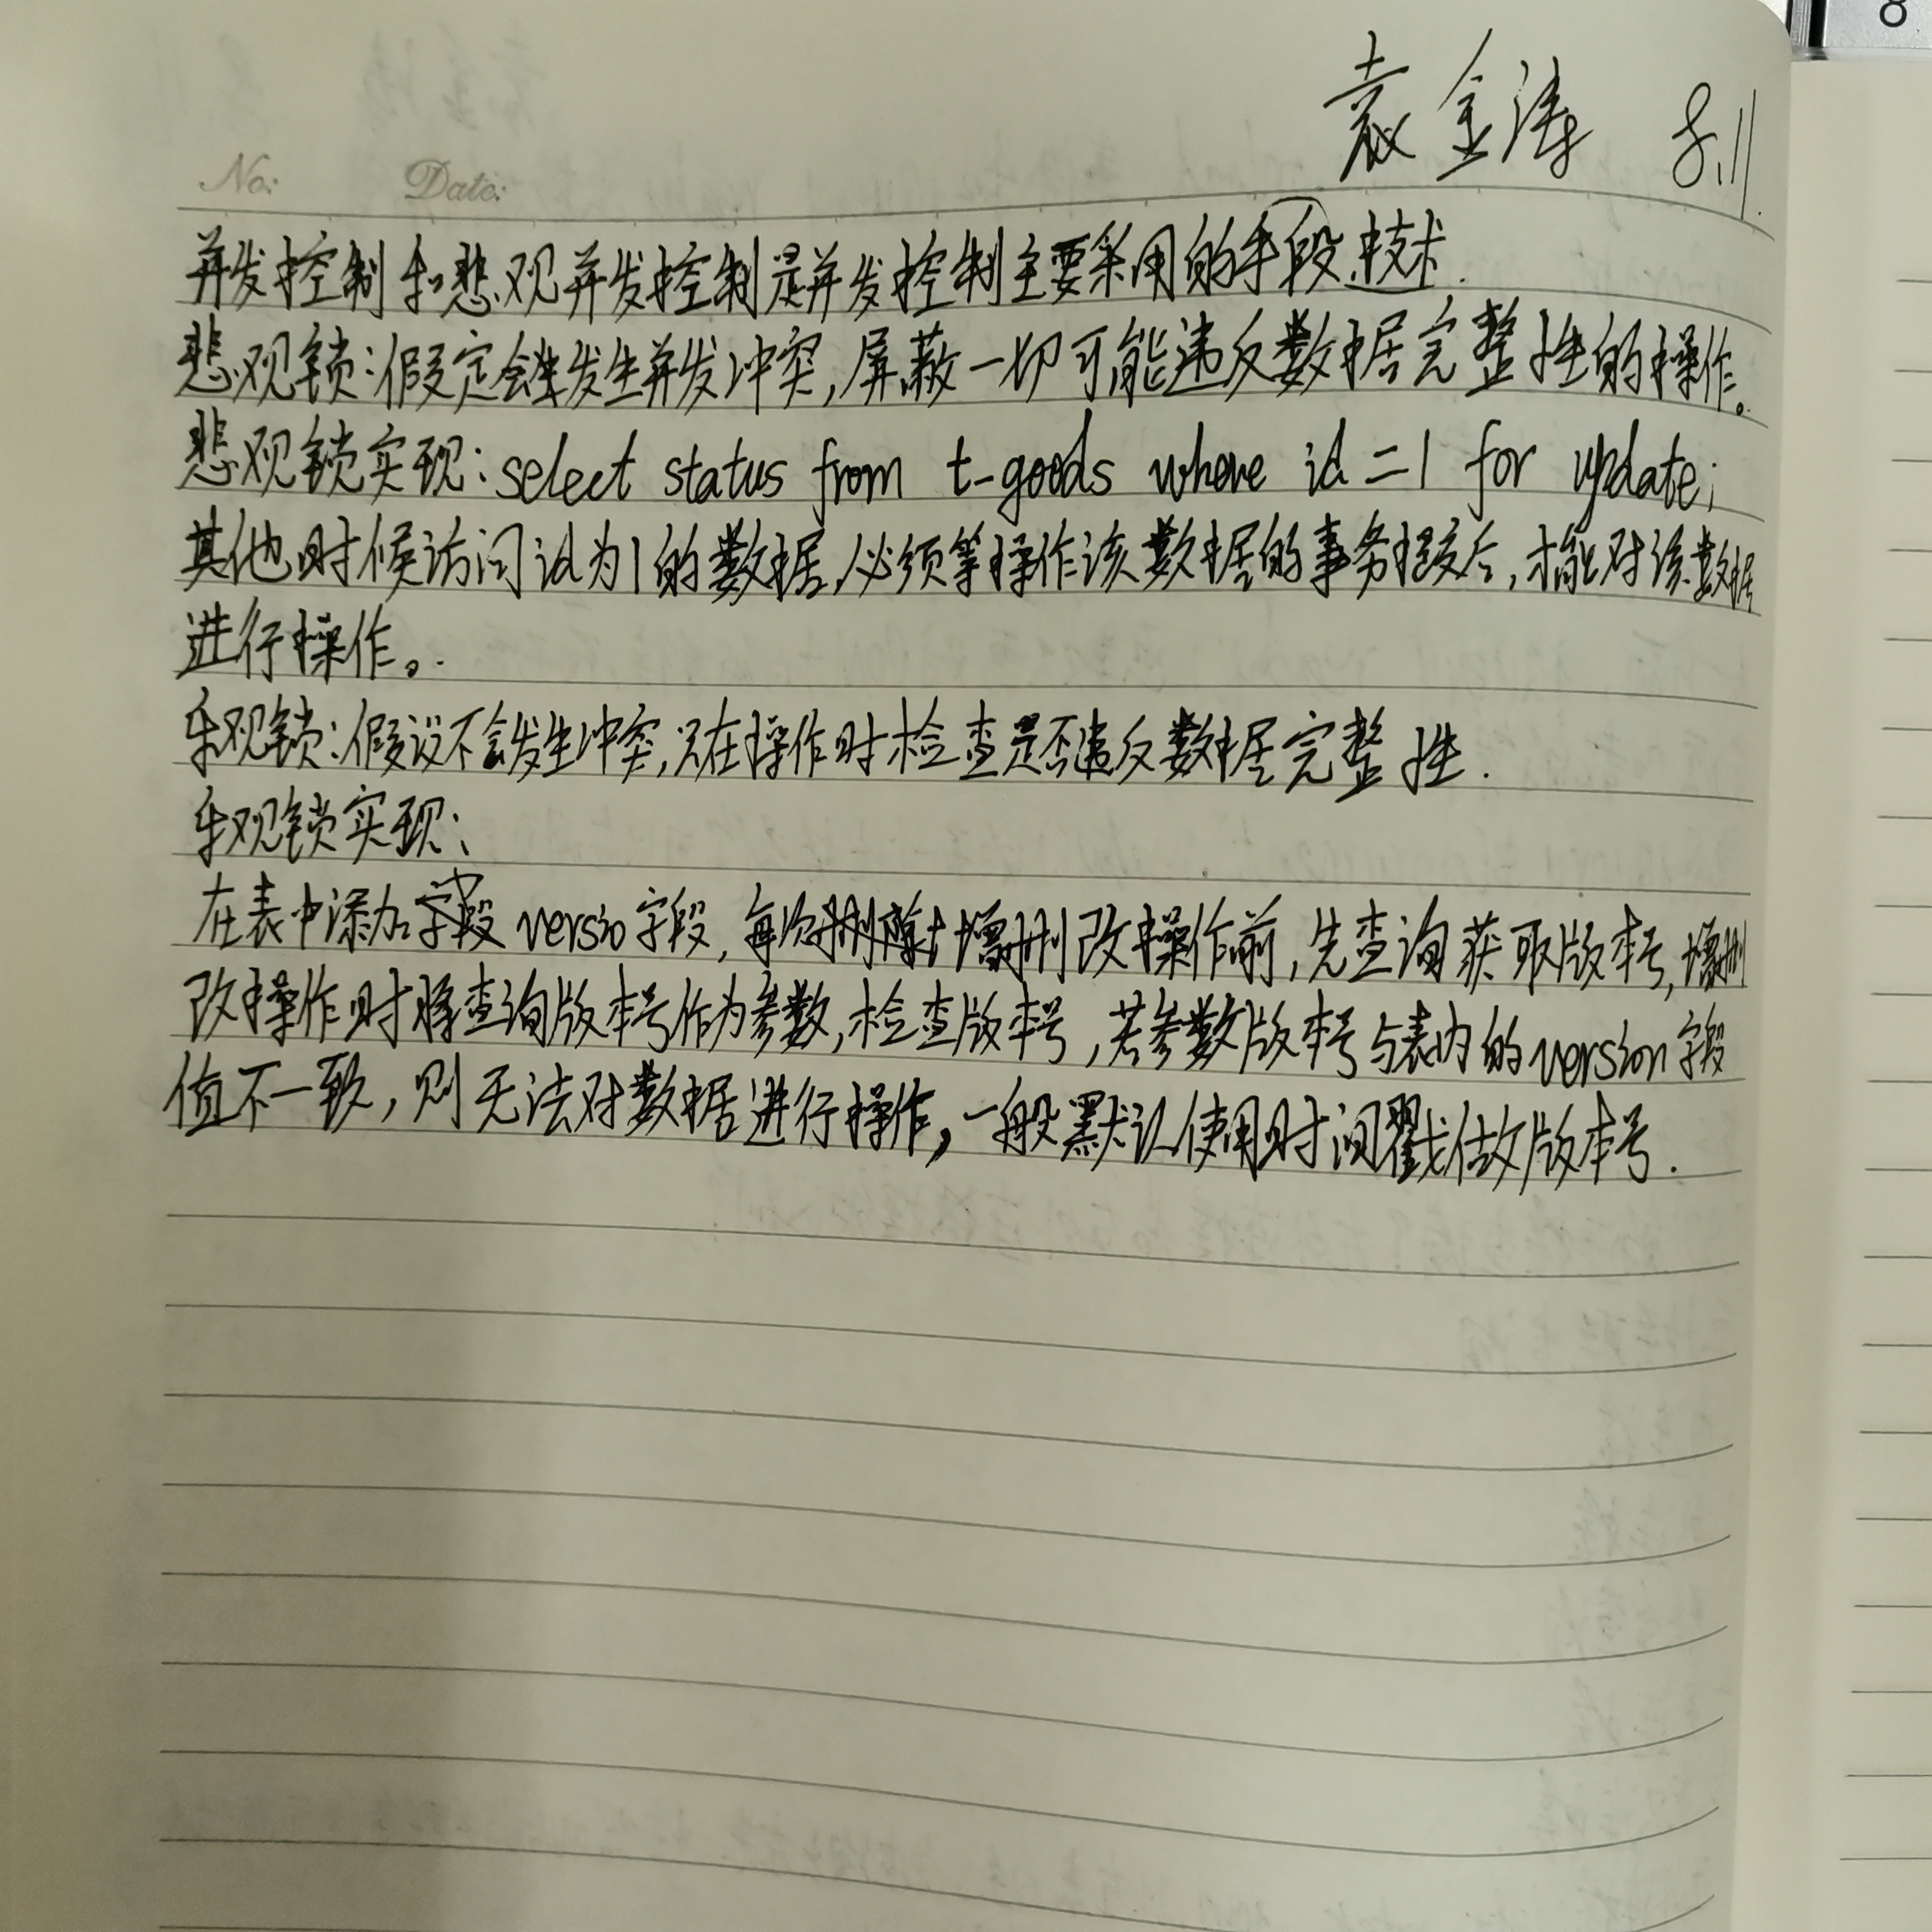 袁金涛 8.11.
No: Date:
并发控制和悲观并发控制是并发控制主要采用的手段技术.
悲观锁:假定会发生并发冲突,屏蔽一切可能违反数据完整性的操作。
悲观锁实现:select status from t-goods where id=1 for update;
其他时候访问id为1的数据,必须等操作该数据的事务提交后,才能对该数据
进行操作。
乐观锁:假设不会发生冲突,只在操作时检查是否违反数据完整性.
乐观锁实现:
在表中添加字段 versio字段,每次增删改操作前,先查询获取版本号,增删
改操作时将查询版本号作为参数,检查版本号,若参数版本号与表内的version字段
值不一致,则无法对数据进行操作,一般默认使用时间戳做版本号.
8